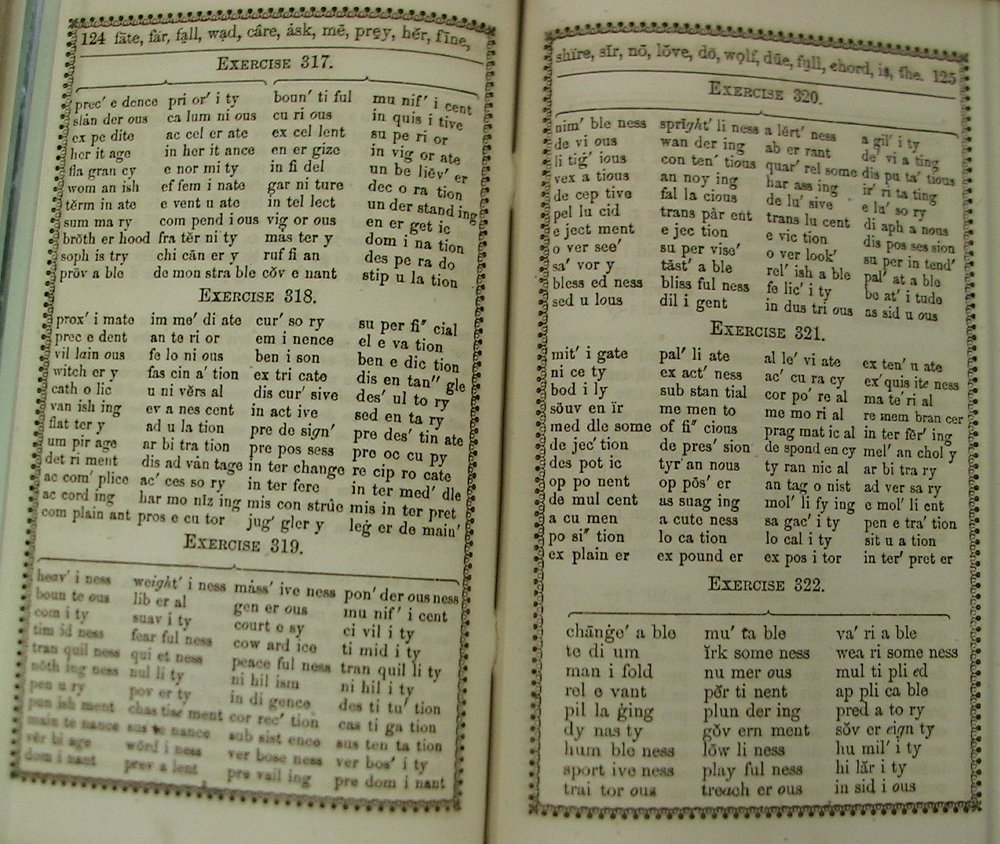 124 fāte, fär, fạll, wạd, câre, ásk, mē, prẹy, hẽr, fīne,
EXERCISE 317.
prec′ e dence pri or′ i ty boun′ ti ful mu nif′ i cent
slán der ous ca lum ni ous cu ri ous in quis i tive
ex pe dite ac cel er ate ex cel lent su pe ri or
her it age in her it ance en er gize in vig or ate
fla gran cy e nor mi ty in fi del un be liēv′ er
wom an ish ef fem i nate gar ni ture dec o ra tion
tẽrm in ate e vent u ate in tel lect un der stand ing
sum ma ry com pend i ous vig or ous en er get ic
brŏth er hood fra tẽr ni ty más ter y dom i na tion
soph is try chi cān er y ruf fi an des pe ra do
pröv a ble de mon stra ble cŏv e nant stip u la tion
EXERCISE 318.
prox′ i mate im me′ di ate cur′ so ry su per fi″ cial
prec e dent an te ri or em i nence el e va tion
vil lain ous fe lo ni ous ben i son ben e dic tion
witch er y fas cin a′ tion ex tri cate dis en tan″ gle
cath o lic u ni vẽrs al dis cur′ sive des′ ul to ry
van ish ing ev a nes cent in act ive sed en ta ry
flat ter y ad u la tion pre de sign′ pre des′ tin ate
um pir age ar bi tra tion pre pos sess pre oc cu py
det ri ment dis ad ván tage in ter change re cip ro cate
ac com′ plice ac′ ces so ry in ter fere in ter med′ dle
ac cord ing har mo nīz ing mis con strûe mis in ter pret
com plain ant pros e cu tor jug′ gler y leġ er de main′
EXERCISE 319.
heav′ i ness weight′ i ness máss′ ive ness pon′ der ous ness
boun te ous lib er al gen er ous mu nif′ i cent
com i ty suav i ty court e sy ci vil i ty
tim id ness fear ful ness cow ard ice ti mid i ty
tran quil ness qui et ness peace ful ness tran quil li ty
nŏth ing ness nul li ty ni hil ism ni hil i ty
pen u ry pov er ty in di gence des ti tu′ tion
pun ish ment chas tise ment cor rec′ tion cas ti ga tion
main te nance sus te nance sub sist ence sus ten ta tion
vẽr bi age wõrd i ness ver bose ness ver bos′ i ty
dom i nant prev a lent pre vail ing pre dom i nant
shīre, sīr, nō, lŏve, dö, wọlf, dūe, fụll, chord, iṣ, the. 125
EXERCISE 320.
nim′ ble ness sprīght′ li ness a lẽrt′ ness a gil′ i ty
de vi ous wan der ing ab er rant de′ vi a ting
li tiġ′ ious con ten′ tious quar′ rel some dis pu ta′ tious
vex a tious an noy ing har ass ing ir′ ri ta ting
de cep tive fal la cious de lu′ sive e lu′ so ry
pel lu cid trans pâr ent trans lu cent di aph a nous
e ject ment e jec tion e vic tion dis pos ses sion
o ver see′ su per vise′ o ver look′ su per in tend′
sa′ vor y tāst′ a ble rel′ ish a ble pal′ at a ble
bless ed ness bliss ful ness fe lic′ i ty be at′ i tude
sed u lous dil i gent in dus tri ous as sid u ous
EXERCISE 321.
mit′ i gate pal′ li ate al le′ vi ate ex ten′ u ate
ni ce ty ex act′ ness ac′ cu ra cy ex′ quis ite ness
bod i ly sub stan tial cor po′ re al ma te′ ri al
söuv en ïr me men to me mo ri al re mem bran cer
med dle some of fi″ cious prag mat ic al in ter fẽr′ ing
de jec′ tion de pres′ sion de spond en cy mel′ an chol y
des pot ic tyr′ an nous ty ran nic al ar bi tra ry
op po nent op pōs′ er an tag o nist ad ver sa ry
de mul cent as suag ing mol′ li fy ing e mol′ li ent
a cu men a cute ness sa gac′ i ty pen e tra′ tion
po si″ tion lo ca tion lo cal i ty sit u a tion
ex plain er ex pound er ex pos i tor in ter′ pret er
EXERCISE 322.
chānġe′ a ble mu′ ta ble va′ ri a ble
te di um ĩrk some ness wea ri some ness
man i fold nu mer ous mul ti pli ed
rel e vant pẽr ti nent ap pli ca ble
pil la ġing plun der ing pred a to ry
dy nas ty gŏv ern ment sŏv er eign ty
hum ble ness lōw li ness hu mil′ i ty
sport ive ness play ful ness hi lăr i ty
trai tor ous treach er ous in sid i ous